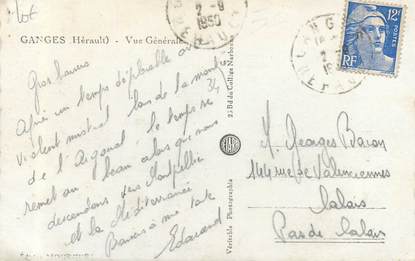 GANGES (Hérault) - Vue Générale
2-9
1950
GANGES
12F
RF
Gros baisers
Après un temps déplorable et
violent mistral lors de la montée
de l'Aigoual le temps se
remet au beau alors que nous
descendons vers Montpellier
et la Méditerranée
Baisers à me
Edouard
34
2, Bd du Collège Narbonne
Véritable Photographie
M. Georges Baron
144 rue de Valenciennes
Calais
Pas de Calais